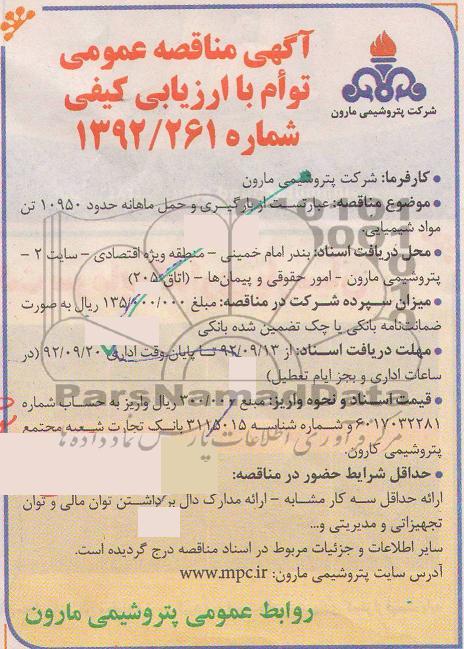 آگهی مناقصه عمومی
توأم با ارزیابی کیفی
شماره ۱۳۹۲/۲۶۱
شرکت پتروشیمی مارون
• کارفرما: شرکت پتروشیمی مارون
• موضوع مناقصه: عبارتست از بارگیری و حمل ماهانه حدود ۱۰۹۵۰ تن
مواد شیمیایی.
• محل دریافت اسناد: بندر امام خمینی – منطقه ویژه اقتصادی – سایت ۲ –
پتروشیمی مارون – امور حقوقی و پیمان‌ها – (اتاق ۲۰۵)
• میزان سپرده شرکت در مناقصه: مبلغ ۱۳۵/۰۰۰/۰۰۰ ریال به صورت
ضمانت‌نامه بانکی یا چک تضمین شده بانکی
• مهلت دریافت اسناد: از ۹۲/۰۹/۱۳ تا پایان وقت اداری ۹۲/۰۹/۲۰ (در
ساعات اداری و بجز ایام تعطیل)
• قیمت اسناد و نحوه واریز: مبلغ ۳۰۰/۰۰۰ ریال واریز به حساب شماره
۶۰۱۷۰۳۲۲۸۱ و شماره شناسه ۳۱۱۵۰۱۵ بانک تجارت شعبه مجتمع
پتروشیمی کارون.
• حداقل شرایط حضور در مناقصه:
ارائه حداقل سه کار مشابه – ارائه مدارک دال بر داشتن توان مالی و توان
تجهیزاتی و مدیریتی و...
سایر اطلاعات و جزئیات مربوط در اسناد مناقصه درج گردیده است.
آدرس سایت پتروشیمی مارون: www.mpc.ir
روابط عمومی پتروشیمی مارون
ParsNamadData
مرکز فرآوری اطلاعات پارس نماد داده‌ها